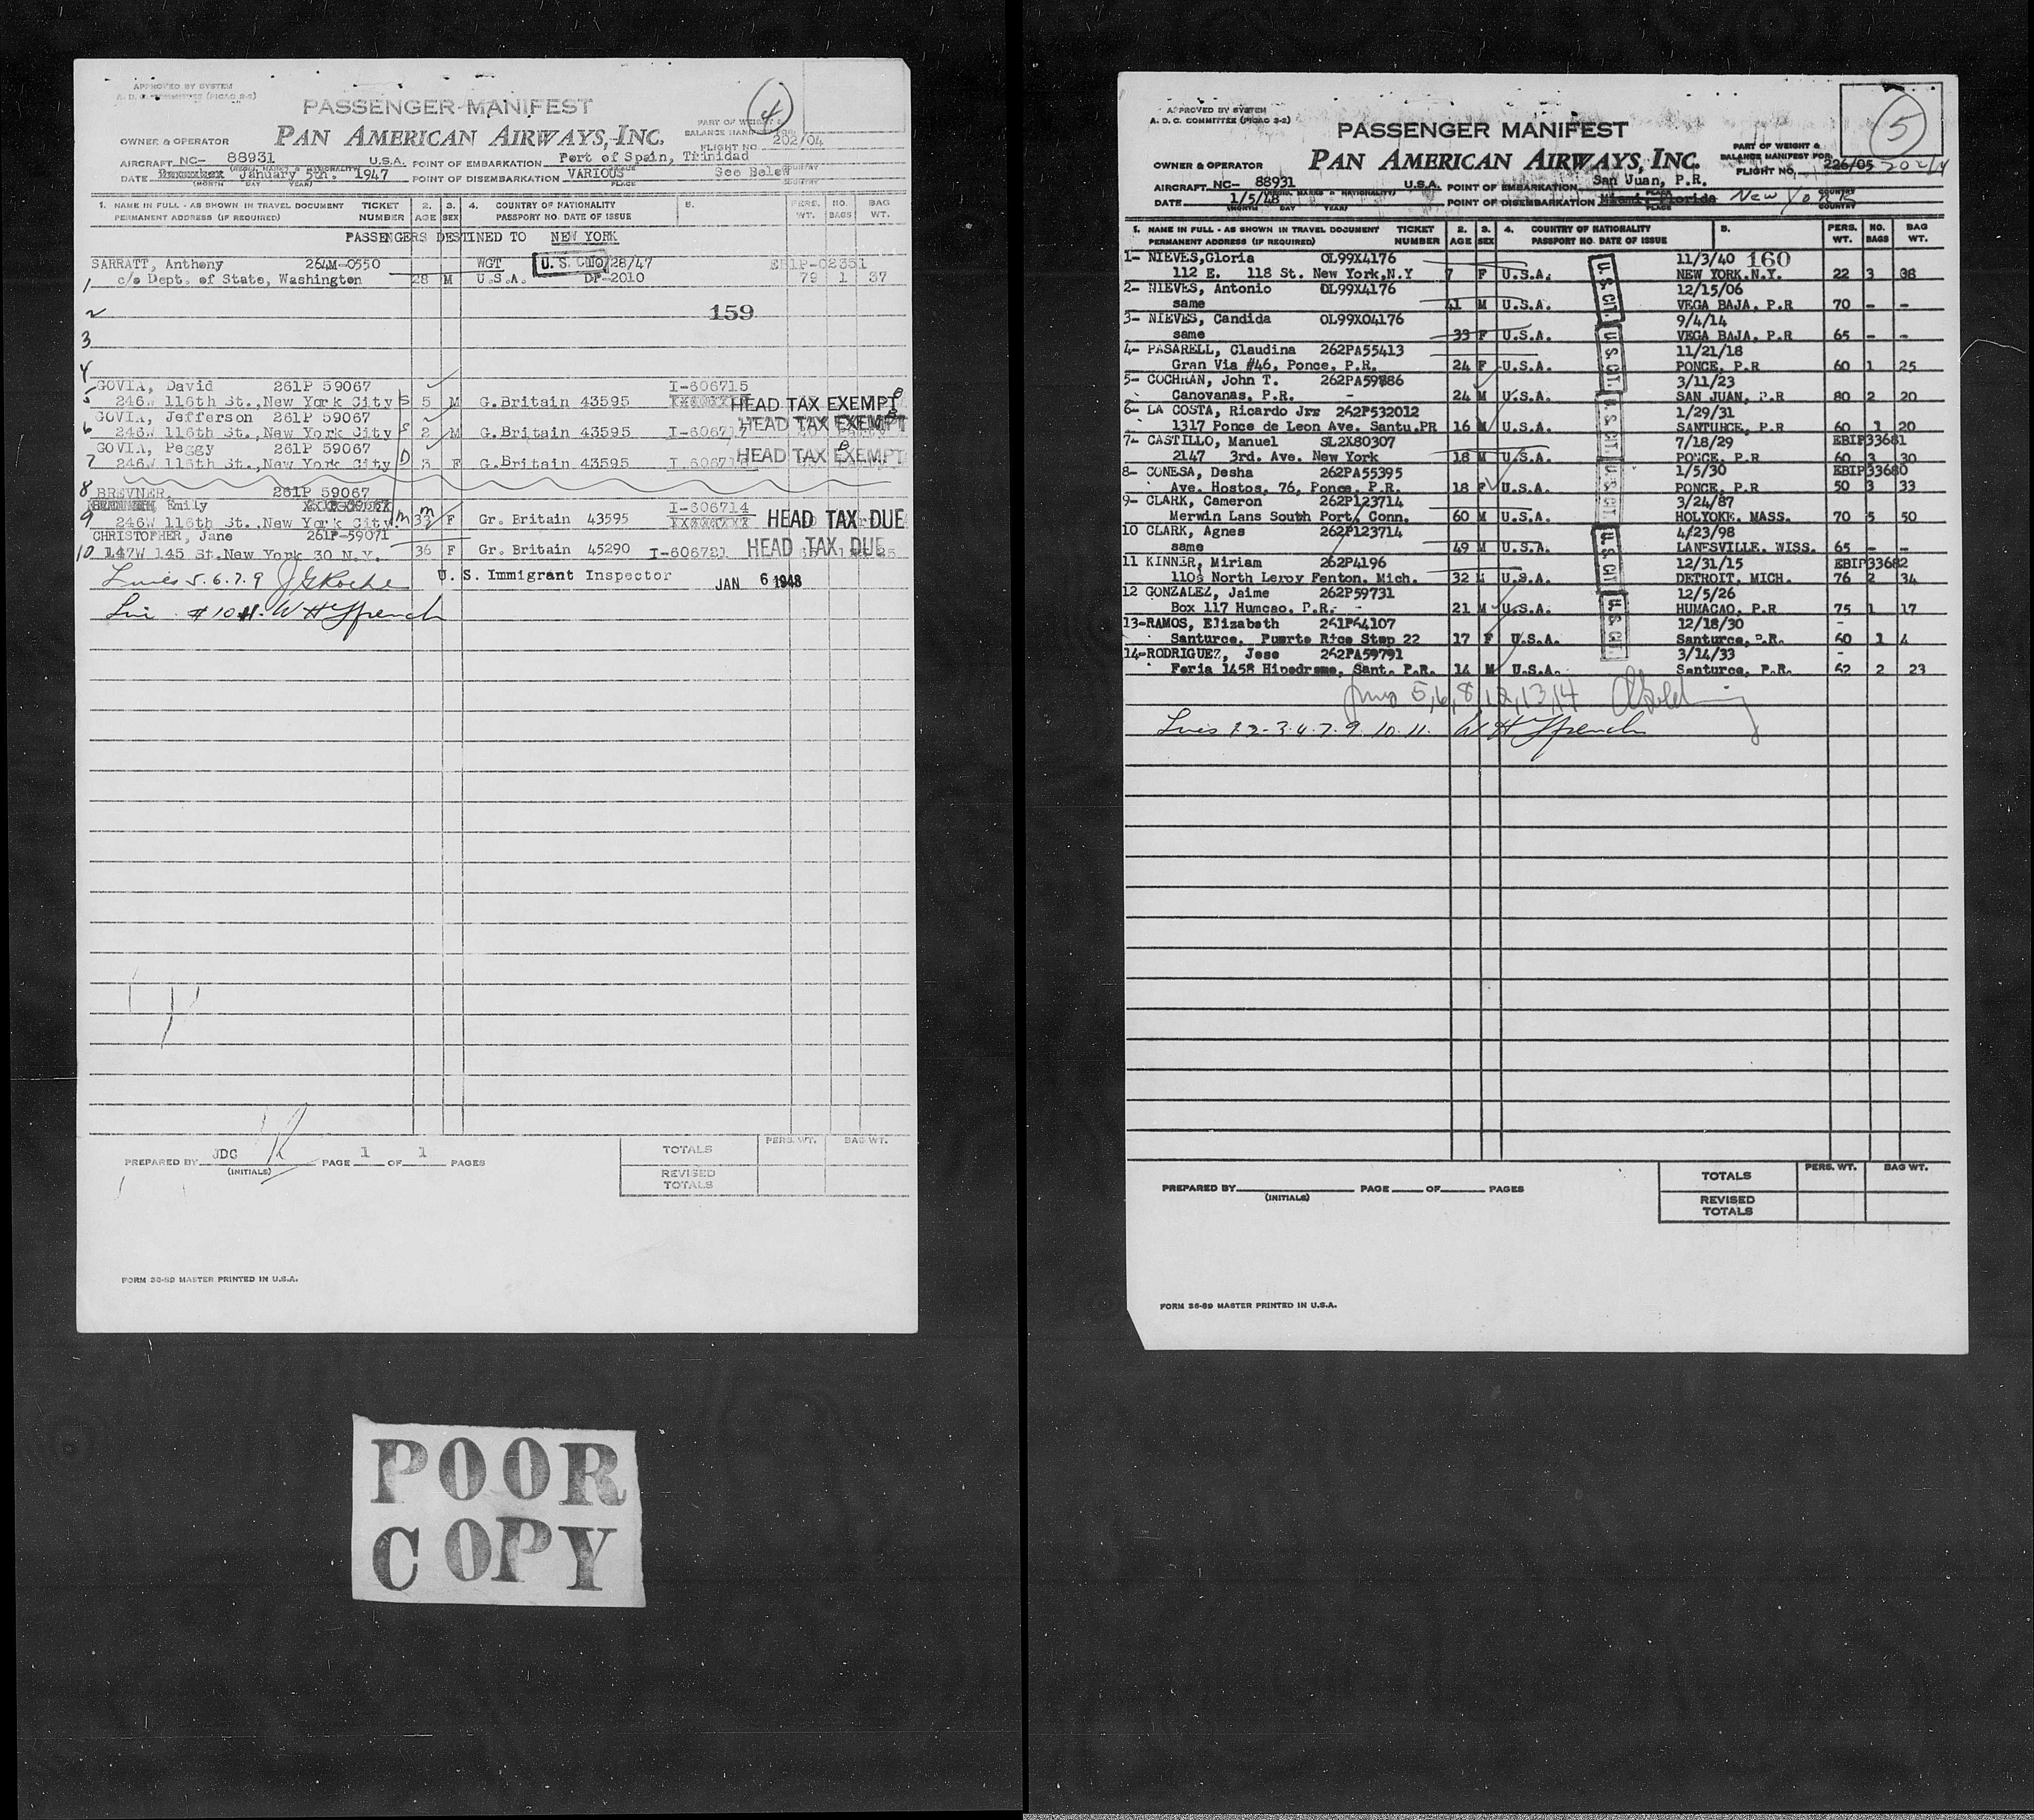 APPROVED BY SYSTEM
A. D. C. COMMITTEE (PICAO 2-2)
PASSENGER MANIFEST
4
OWNER & OPERATOR PAN AMERICAN AIRWAYS, INC.
PART OF WEIGHT &
BALANCE MANIFEST
FLIGHT NO. 202/04
AIRCRAFT NC- 88931 U.S.A. POINT OF EMBARKATION Port of Spain, Trinidad
DATE January 5th. 1947 POINT OF DISEMBARKATION VARIOUS See Below
(MONTH DAY YEAR) PLACE COUNTRY
1. NAME IN FULL - AS SHOWN IN TRAVEL DOCUMENT TICKET 2. 3. 4. COUNTRY OF NATIONALITY 5. PERS. NO. BAG
PERMANENT ADDRESS (IF REQUIRED) NUMBER AGE SEX PASSPORT NO. DATE OF ISSUE WT. BAGS WT.
PASSENGERS DESTINED TO NEW YORK
SARRATT, Anthony 264M-0550 WGT U.S. CIT 10/28/47 EB1P-02351
1 c/o Dept. of State, Washington 28 M U.S.A. DP-2010 79 1 37
2 159
3
4
GOVIA, David 261P 59067 I-606715
5 246W 116th St.,New York City S 5 M G.Britain 43595 HEAD TAX EXEMPT
GOVIA, Jefferson 261P 59067 HEAD TAX EXEMPT
6 246W 116th St.,New York City S 2 M G.Britain 43595
GOVIA, Peggy 261P 59067 HEAD TAX EXEMPT
7 246W 116th St.,New York City D 3 F G.Britain 43595
8 BREVNER, 261P 59067
Emily I-606714
9 246W 116th St.,New York City M 33 F Gr. Britain 43595 HEAD TAX DUE
CHRISTOPHER, Jane 261P-59071
10 147W 145 St.New York 30 N.Y. 36 F Gr. Britain 45290 I-606721 HEAD TAX DUE
Lines 5.6.7.9 J G Roche U. S. Immigrant Inspector JAN 6 1948
Line #10 W H Ffrench
PREPARED BY JDG PAGE 1 OF 1 PAGES
(INITIALS)
PERS. WT. BAG WT.
TOTALS
REVISED
TOTALS
FORM 36-89 MASTER PRINTED IN U.S.A.
POOR
COPY
APPROVED BY SYSTEM
A. D. C. COMMITTEE (PICAO 2-2)
PASSENGER MANIFEST
5
OWNER & OPERATOR PAN AMERICAN AIRWAYS, INC.
PART OF WEIGHT &
BALANCE MANIFEST FOR
FLIGHT NO. 226/05 202/4
AIRCRAFT NC- 88931 U.S.A. POINT OF EMBARKATION San Juan, P.R.
DATE 1/5/48 POINT OF DISEMBARKATION Miami, Florida New York
(MONTH DAY YEAR) PLACE COUNTRY
1. NAME IN FULL - AS SHOWN IN TRAVEL DOCUMENT TICKET 2. 3. 4. COUNTRY OF NATIONALITY 5. PERS. NO. BAG
PERMANENT ADDRESS (IF REQUIRED) NUMBER AGE SEX PASSPORT NO. DATE OF ISSUE WT. BAGS WT.
1- NIEVES,Gloria OL99X4176 11/3/40 160
112 E. 118 St. New York,N.Y 7 F U.S.A. U.S. CIT. NEW YORK.N.Y. 22 3 38
2- NIEVES, Antonio OL99X4176 12/15/06
same 41 M U.S.A. VEGA BAJA, P.R 70 - -
3- NIEVES, Candida OL99X04176 9/4/14
same 33 F U.S.A. U.S. CIT. VEGA BAJA, P.R 65 - -
4- PASARELL, Claudina 262PA55413 11/21/18
Gran Via #46, Ponce, P.R. 24 F U.S.A. PONCE, P.R 60 1 25
5- COCHRAN, John T. 262PA59886 3/11/23
Canovanas, P.R. - 24 M U.S.A. U.S. CIT. SAN JUAN, P.R 80 2 20
6- LA COSTA, Ricardo Jrr 262P532012 1/29/31
1317 Ponce de Leon Ave. Santu.PR 16 M U.S.A. SANTURCE, P.R 60 1 20
7- CASTILLO, Manuel SL2X80307 7/18/29 EBIP33681
2147 3rd. Ave. New York 18 M U.S.A. U.S. CIT. PONCE, P.R 60 3 30
8- CONESA, Desha 262PA55395 1/5/30 EBIP33680
Ave. Hostos, 76, Ponce, P.R. 18 F U.S.A. PONCE, P.R 50 3 33
9- CLARK, Cameron 262P123714 3/24/87
Merwin Lans South Port, Conn. 60 M U.S.A. HOLYOKE, MASS. 70 5 50
10 CLARK, Agnes 262P123714 4/23/98
same 49 M U.S.A. U.S. CIT. LANESVILLE, WISS. 65 - -
11 KINNER, Miriam 262P4196 12/31/15 EBIP33682
110s North Leroy Fenton, Mich. 32 U.S.A. DETROIT, MICH. 76 2 34
12 GONZALEZ, Jaime 262P59731 12/5/26
Box 117 Humcao. P.R.- - 21 M U.S.A. HUMACAO, P.R 75 1 17
13-RAMOS, Elizabeth 261P64107 12/18/30 -
Santurce, Puerto Rico Stop 22 17 F U.S.A. U.S. CIT. Santurce, P.R. 60 1 4
14-RODRIGUEZ, Jose 262PA59791 3/14/33 -
Feria 1458 Hipodrome, Sant. P.R. 14 M U.S.A. Santurce, P.R. 62 2 23
Lines 5,6,8,12,13,14
Lines 1-2-3.4.7.9.10.11. W H Ffrench
PREPARED BY PAGE OF PAGES
(INITIALS)
PERS. WT. BAG WT.
TOTALS
REVISED
TOTALS
FORM 36-89 MASTER PRINTED IN U.S.A.